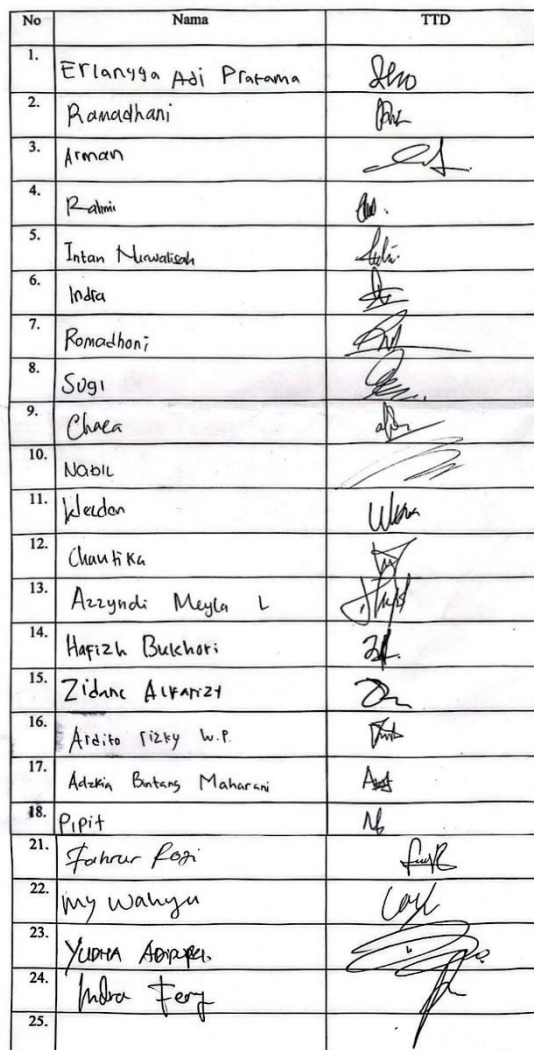 No Nama TTD
1. Erlangga Adi Pratama
2. Ramadhani
3. Arman
4. Rahmi
5. Intan Nurwalisah
6. Indra
7. Romadhoni
8. Sugi
9. Chaca
10. Nabil
11. Werdan
12. Chautika
13. Azzyndi Meyla L
14. Hafizh Bukhori
15. Zidane Alfarizy
16. Ardito rizky W.P.
17. Adzkia Bintang Maharani
18. Pipit
21. Fahrur Rozi
22. My Wahyu
23. YUDHA
24. Indra Fery
25.